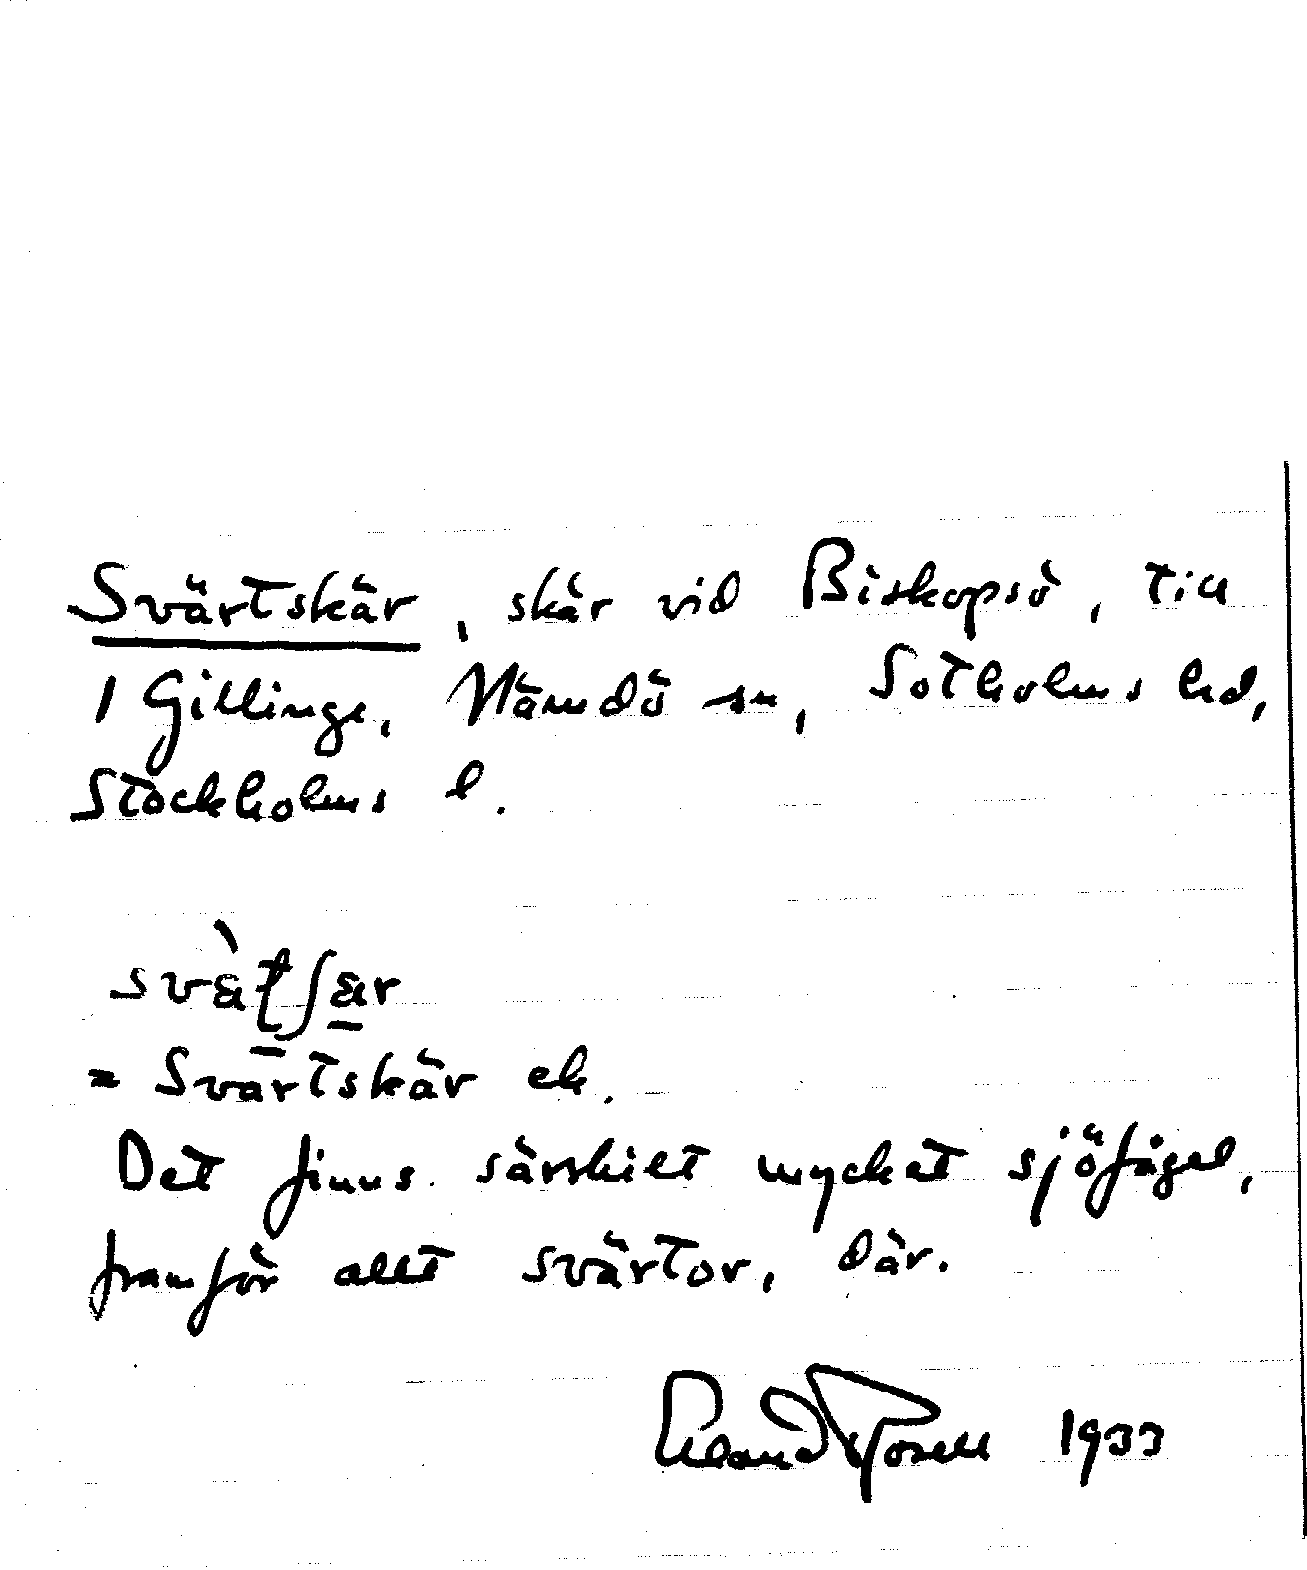 Svärtskär, skär vid Biskopsö, till
1 Gillinge, Nämdö sn, Sotholms hd,
Stockholms l.
= Svärtskär ek.
Det finns särskilt mycket sjöfågel,
framför allt svärtor, där.
1933